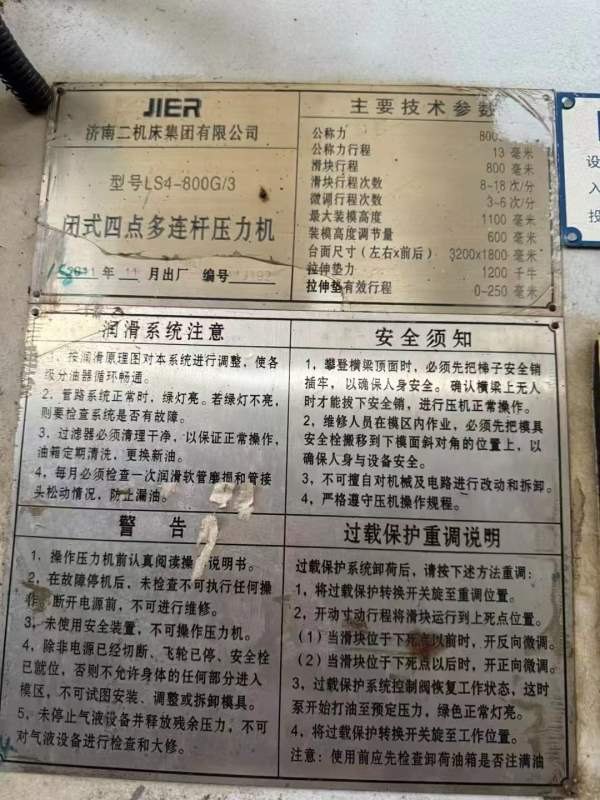 JIER
济南二机床集团有限公司
型号LS4-800G/3
闭式四点多连杆压力机
2011 年 11 月出厂 编号
主要技术参数
公称力 800
公称力行程 13 毫米
滑块行程 800 毫米
滑块行程次数 8-18 次/分
微调行程次数 3-6 次/分
最大装模高度 1100 毫米
装模高度调节量 600 毫米
台面尺寸（左右x前后） 3200x1800 毫米
拉伸垫力 1200 千牛
拉伸垫有效行程 0-250 毫米
设
入
投
润滑系统注意
1、按润滑原理图对本系统进行调整，使各
级分油器循环畅通。
2、管路系统正常时，绿灯亮。若绿灯不亮，
则要检查系统是否有故障。
3、过滤器必须清理干净，以保证正常操作，
油箱定期清洗，更换新油。
4、每月必须检查一次润滑软管磨损和管接
头松动情况，防止漏油。
安全须知
1、攀登横梁顶面时，必须先把梯子安全销
插牢，以确保人身安全。确认横梁上无人
时才能拔下安全销，进行压机正常操作。
2、维修人员在模区内作业，必须先把模具
安全栓搬移到下模面斜对角的位置上，以
确保人身与设备安全。
3、不可擅自对机械及电路进行改动和拆卸。
4、严格遵守压机操作规程。
警告
1、操作压力机前认真阅读操 说明书。
2、在故障停机后，未检查不可执行任何操
作，断开电源前，不可进行维修。
3、未使用安全装置，不可操作压力机。
4、除非电源已经切断、飞轮已停、安全栓
已就位，否则不允许身体的任何部分进入
模区，不可试图安装、调整或拆卸模具。
5、未停止气液设备并释放残余压力，不可
对气液设备进行检查和大修。
过载保护重调说明
过载保护系统卸荷后，请按下述方法重调：
1、将过载保护转换开关旋至重调位置。
2、开动寸动行程将滑块运行到上死点位置。
（1）当滑块位于下死点以前时，开反向微调。
（2）当滑块位于下死点以后时，开正向微调。
3、过载保护系统控制阀恢复工作状态，这时
泵开始打油至预定压力，绿色正常灯亮。
4、将过载保护转换开关旋至工作位置。
注意：使用前应先检查卸荷油箱是否注满油